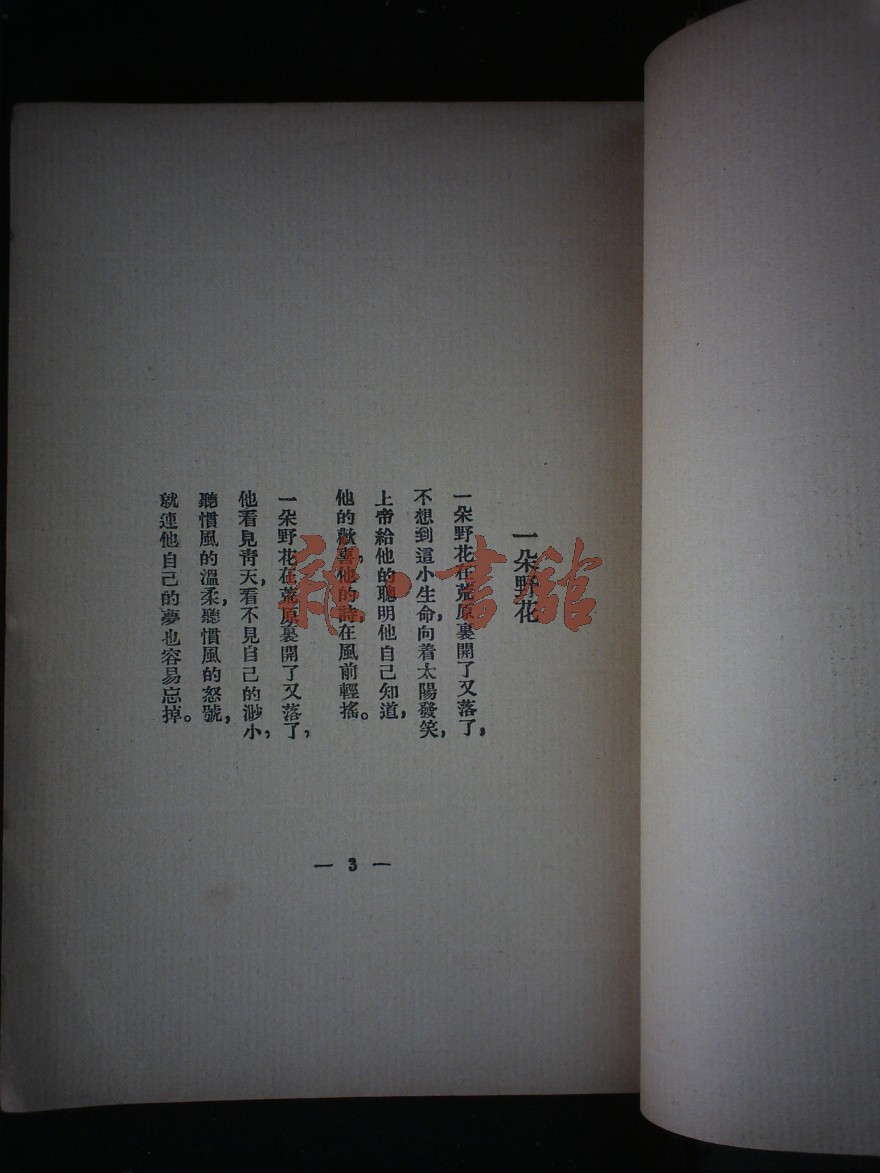 一朵野花
一朵野花在荒原裏開了又落了,
不想到這小生命,向着太陽發笑,
上帝給他的聰明他自己知道,
他的歡喜,他的詩,在風前輕搖。
一朵野花在荒原裏開了又落了,
他看見青天,看不見自己的渺小,
聽慣風的溫柔,聽慣風的怒號,
就連他自己的夢也容易忘掉。
— 3 —
雜·書館